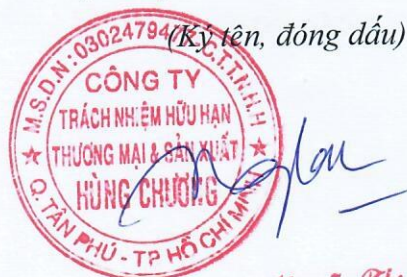 (Ký tên, đóng dấu)
M.S.D.N: 03024794
C.T.T.N.H.H
CÔNG TY
TRÁCH NHIỆM HỮU HẠN
THƯƠNG MẠI & SẢN XUẤT
HÙNG CHƯƠNG
Q. TÂN PHÚ - TP HỒ CHÍ MINH